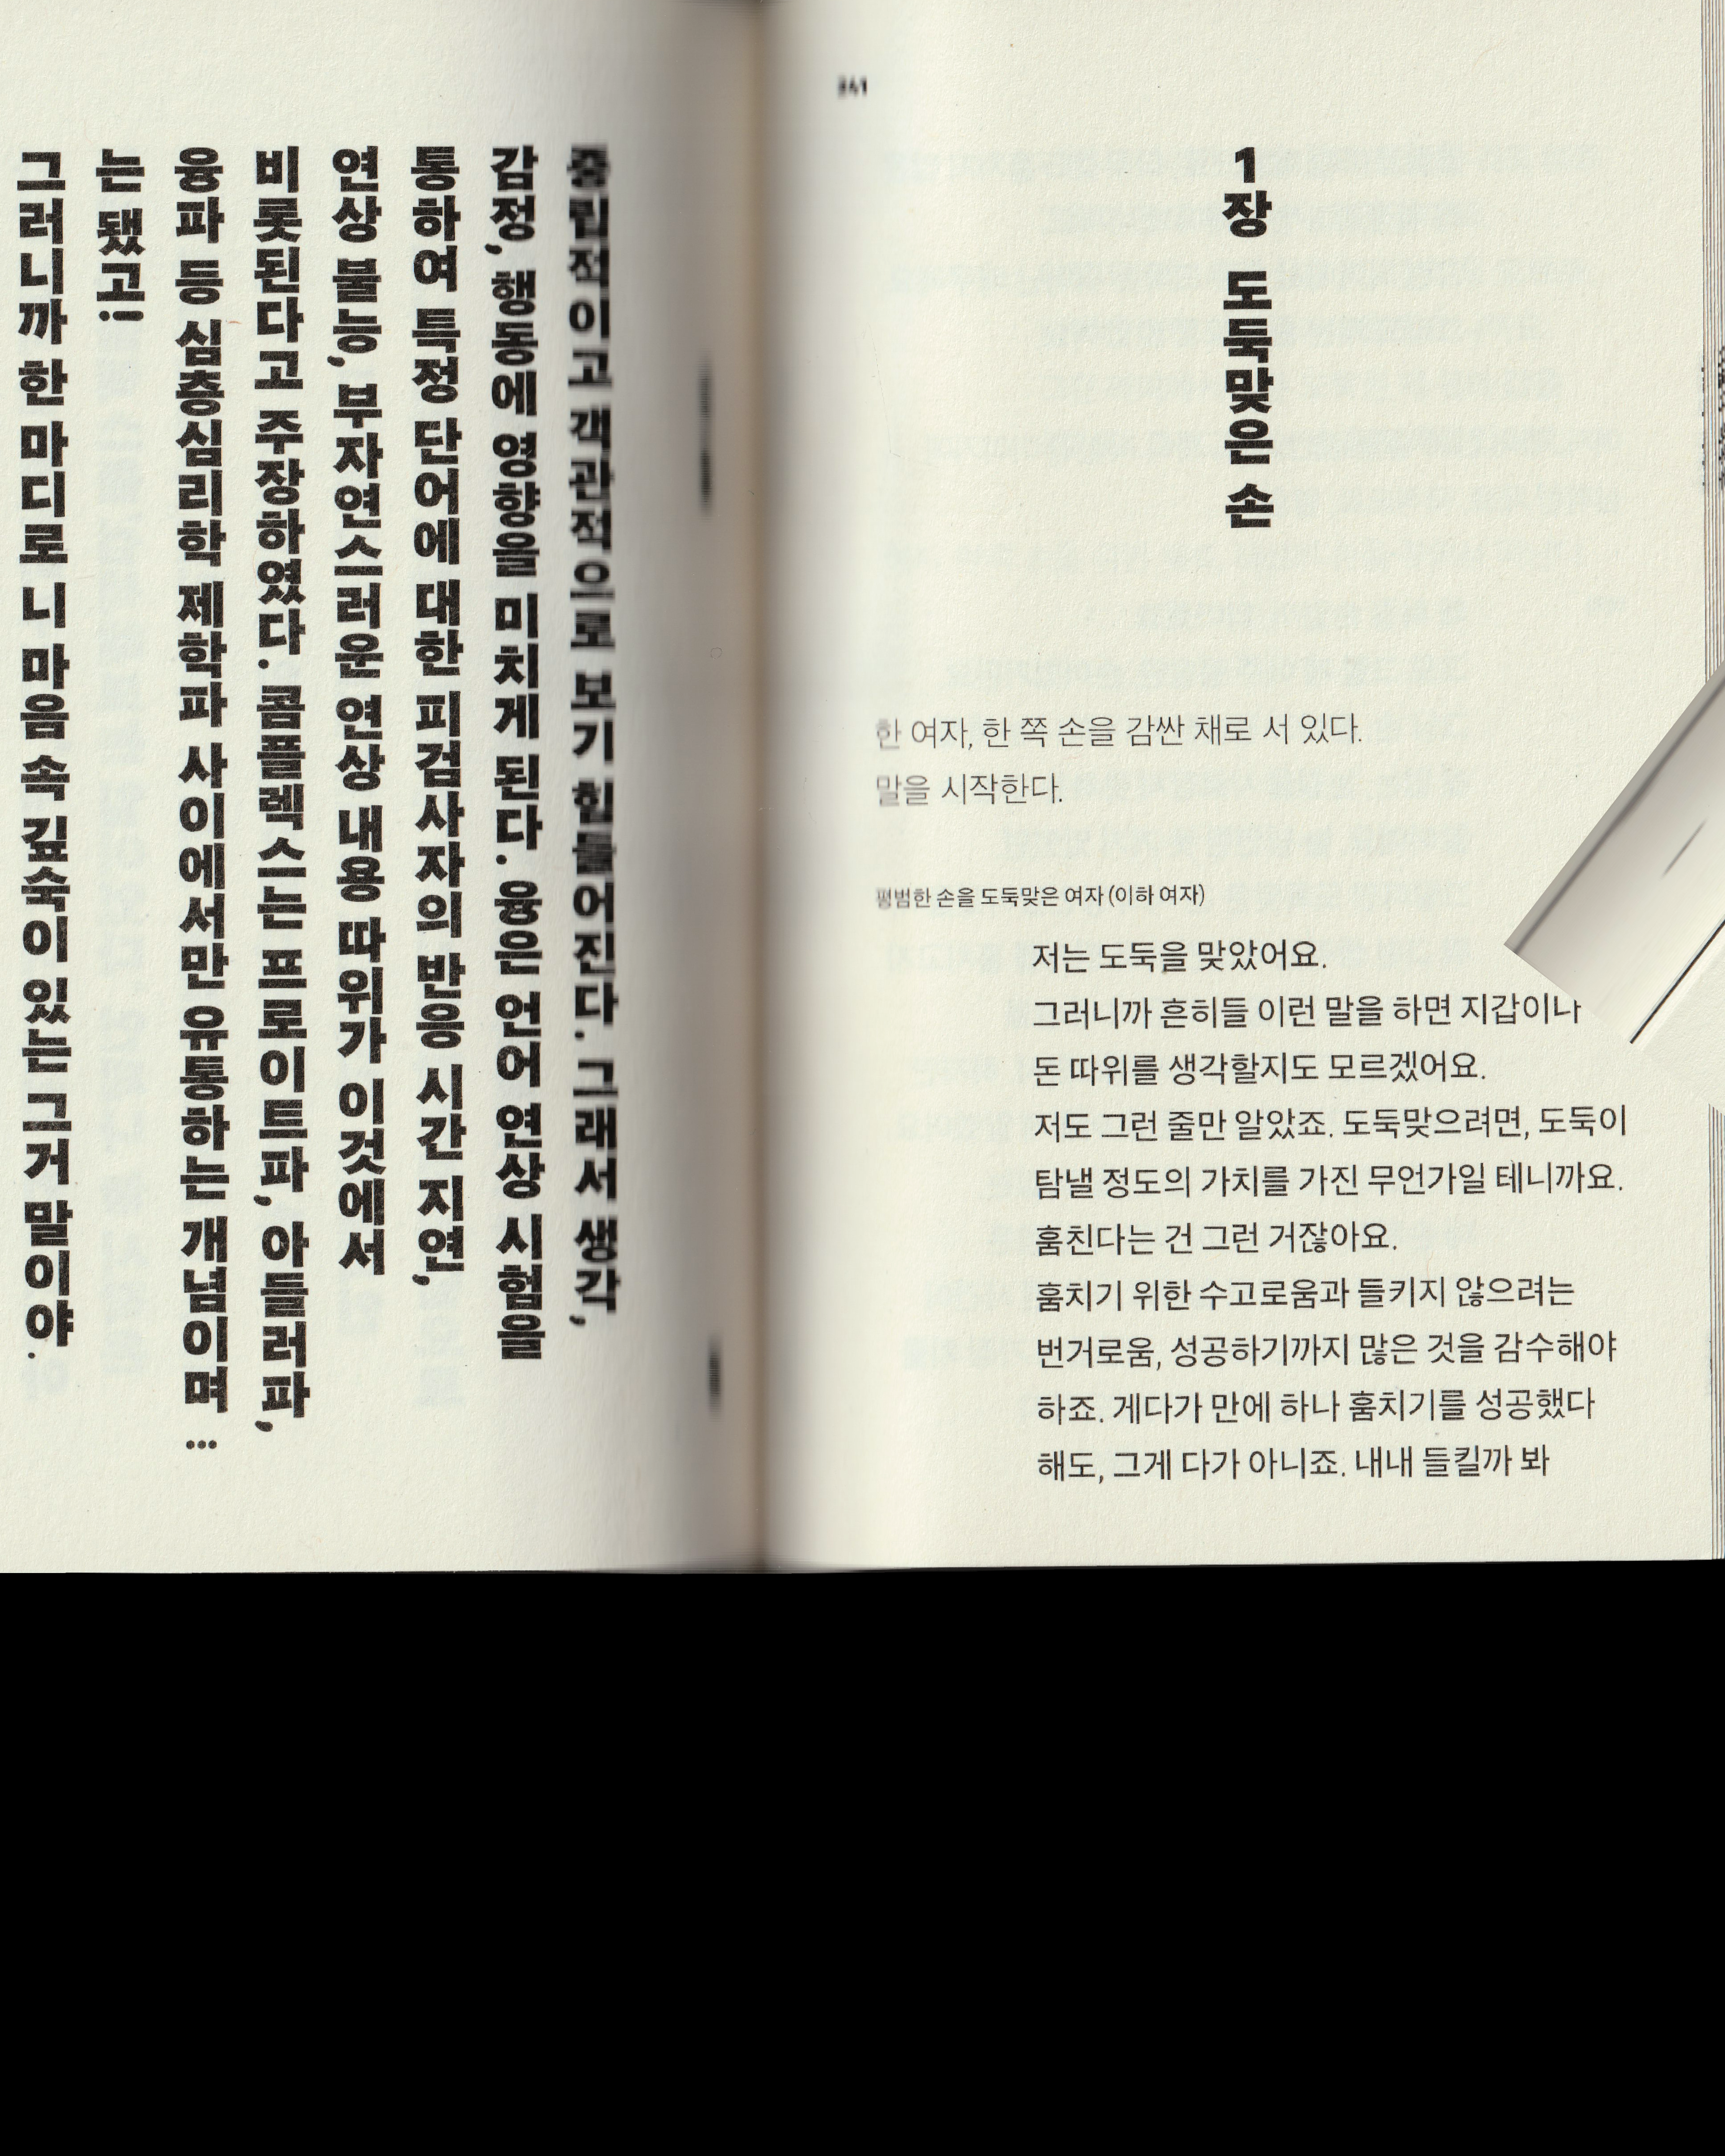 중립적이고 객관적으로 보기 힘들어진다. 그래서 생각,
감정, 행동에 영향을 미치게 된다. 융은 언어 연상 시험을
통하여 특정 단어에 대한 피검사자의 반응 시간 지연,
연상 불능, 부자연스러운 연상 내용 따위가 이것에서
비롯된다고 주장하였다. 콤플렉스는 프로이트파, 아들러파,
융파 등 심층심리학 제학파 사이에서만 유통하는 개념이며…
는 됐고!
그러니까 한 마디로 니 마음 속 깊숙이 있는 그거 말이야.
341
1장 도둑맞은 손
한 여자, 한 쪽 손을 감싼 채로 서 있다.
말을 시작한다.
평범한 손을 도둑맞은 여자 (이하 여자)
저는 도둑을 맞았어요.
그러니까 흔히들 이런 말을 하면 지갑이나
돈 따위를 생각할지도 모르겠어요.
저도 그런 줄만 알았죠. 도둑맞으려면, 도둑이
탐낼 정도의 가치를 가진 무언가일 테니까요.
훔친다는 건 그런 거잖아요.
훔치기 위한 수고로움과 들키지 않으려는
번거로움, 성공하기까지 많은 것을 감수해야
하죠. 게다가 만에 하나 훔치기를 성공했다
해도, 그게 다가 아니죠. 내내 들킬까 봐